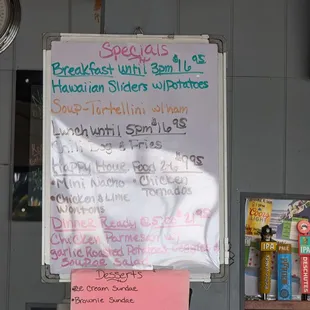 Specials
Breakfast until 3pm $16.95
Hawaiian Sliders w/Potatoes
Soup-Tortellini w/ham
Lunch until 5pm $16.95
Fries
Happy Hour Food 2-6 $9.95
• Mini Nacho • Chicken
Tornados
• Chicken & Lime
Wontons
Dinner Ready @ 5:00 $21.95
Chicken Parmesan w/
garlic Roasted Potatoes
Soup or Salad
Desserts
Ice Cream Sundae
• Brownie Sundae
IPA
DESCHUTES